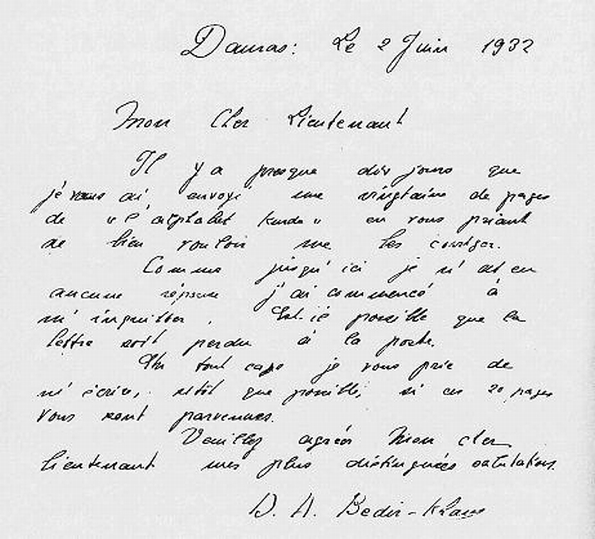 Damas: Le 2 Juin 1932
Mon Cher Lieutenant
Il y a presque dix jours que
je vous ai envoyé une vingtaine de pages
de « l'alphabet kurde » en vous priant
de bien vouloir me les corriger.
Comme jusqu'ici je n'ai eu
aucune réponse j'ai commencé à
m'inquiéter. Est-il possible que la
lettre soit perdue à la poste.
En tout cas je vous prie de
m'écrire, sitôt que possible, si ces 20 pages
vous sont parvenues.
Veuillez agréer Mon cher
lieutenant mes plus distinguées salutations.
D. A. Bedir-Khan